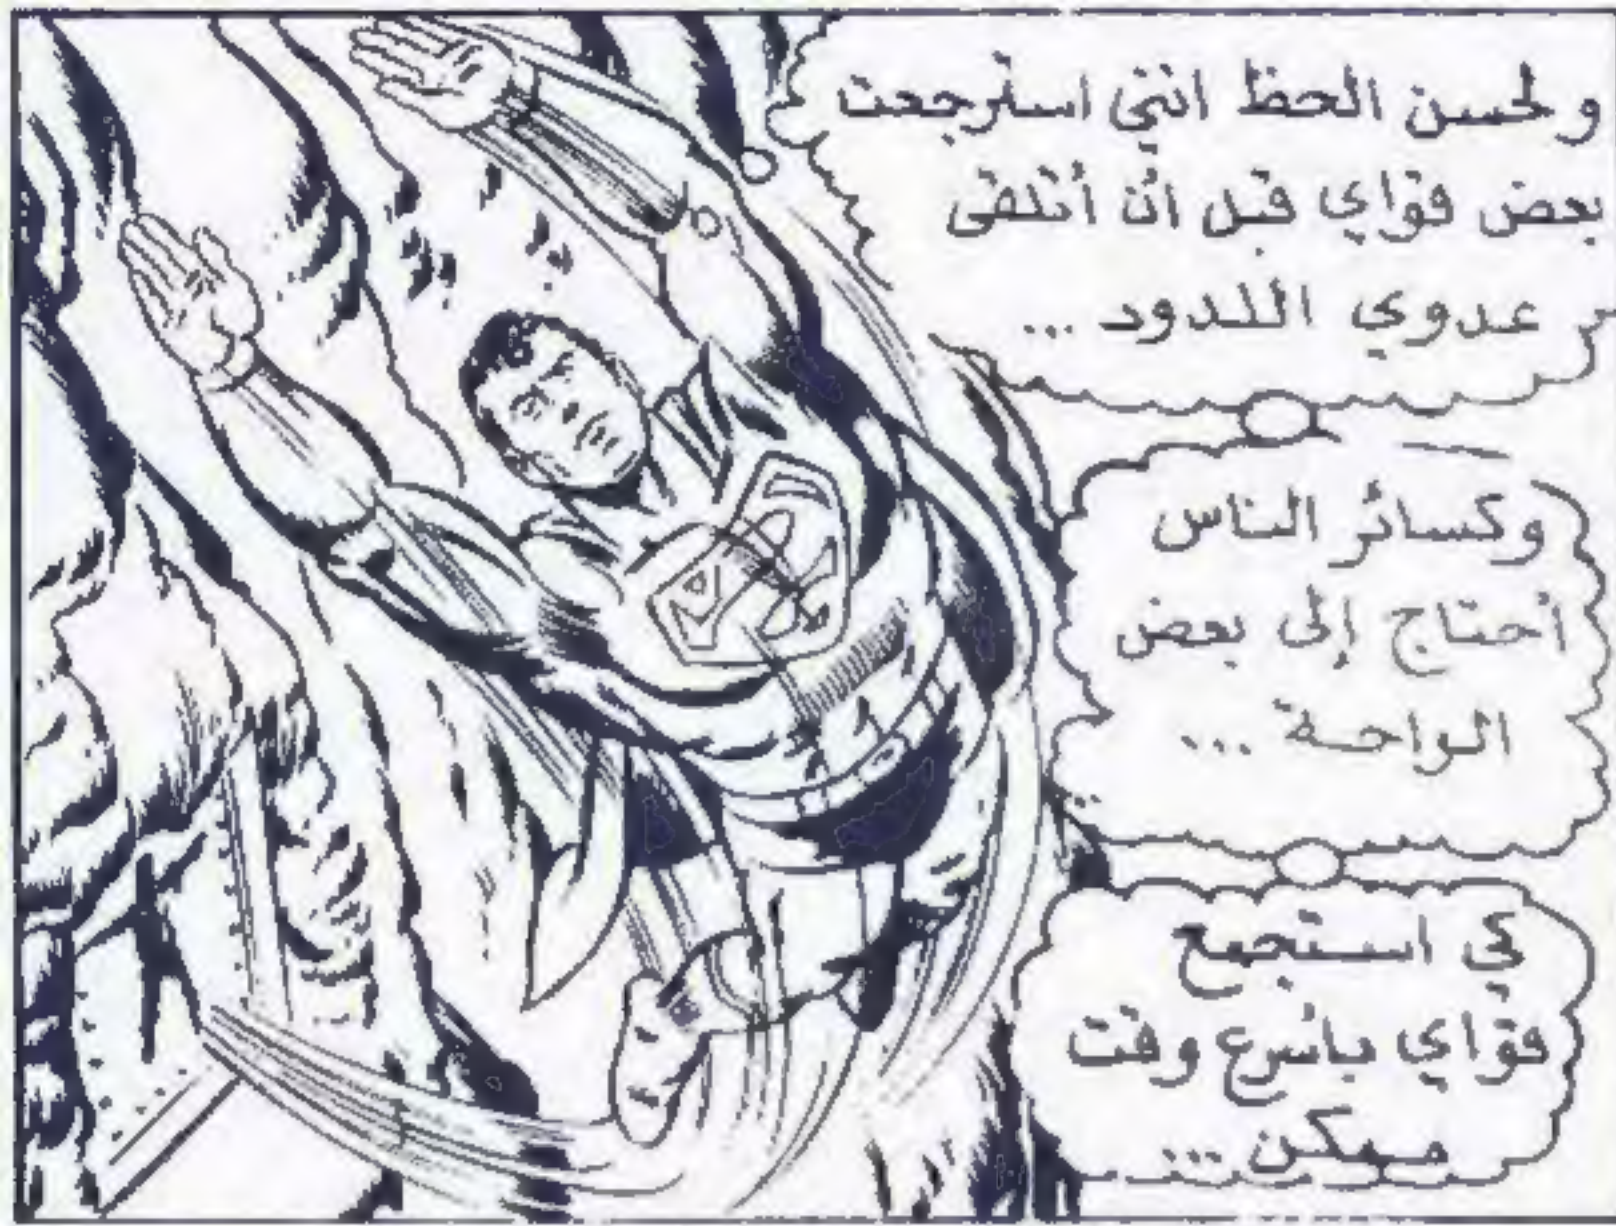 ولحسن الحظ انني استرجعت
بعض قواي قبل أن أتلقى
عدوي اللدود ...
وكسائر الناس
أحتاج إلى بعض
الراحة ...
كي استجمع
قواي بأسرع وقت
ممكن ...